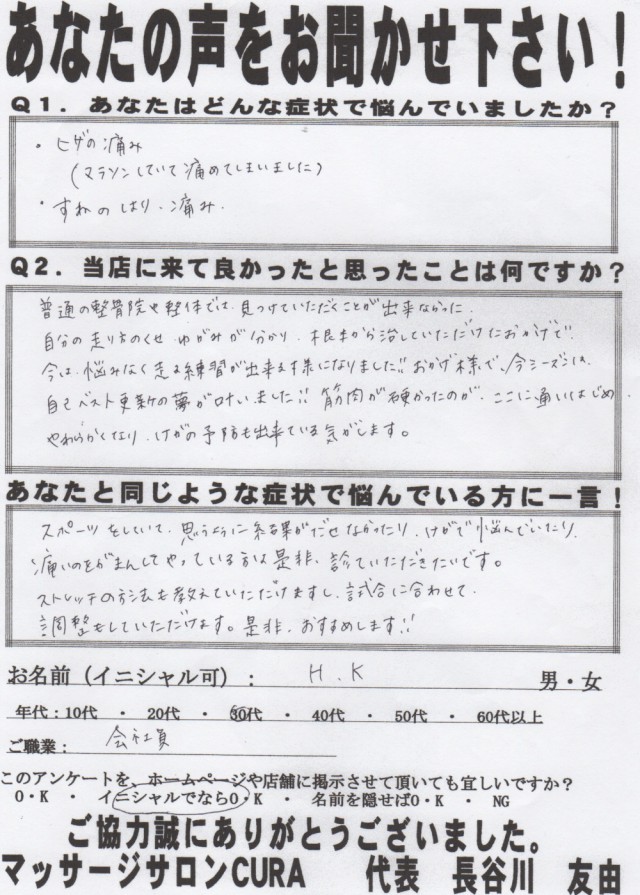 あなたの声をお聞かせ下さい！
Q1．あなたはどんな症状で悩んでいましたか？
・ヒザの痛み
(マラソンしていて痛めてしまいました)
・すねのはり、痛み．
Q2．当店に来て良かったと思ったことは何ですか？
普通の整骨院や整体では、見つけていただくことが出来なかった、
自分の走り方のくせ、ゆがみが分かり、根本から治していただけたおかげで
今は、悩みなく走る練習が出来る様になりました!! おかげ様で、今シーズンは、
自己ベスト更新の夢が叶いました!! 筋肉が硬かったのが、ここに通いはじめ、
やわらかくなり、けがの予防も出来ている気がします。
あなたと同じような症状で悩んでいる方に一言！
スポーツをしていて、思うように結果がだせなかったり、けがで悩んでいたり、
痛いのをがまんしてやっている方は是非、診ていただきたいです。
ストレッチの方法も教えていただけますし、試合に合わせて
調整もしていただけます。是非、おすすめします!!
お名前（イニシャル可）： H.K 男・女
年代：10代 ・ 20代 ・ 30代 ・ 40代 ・ 50代 ・ 60代以上
ご職業： 会社員
このアンケートを、ホームページや店舗に掲示させて頂いても宜しいですか？
O・K ・ イニシャルでならO・K ・ 名前を隠せばO・K ・ NG
ご協力誠にありがとうございました。
マッサージサロンCURA 代表 長谷川 友由